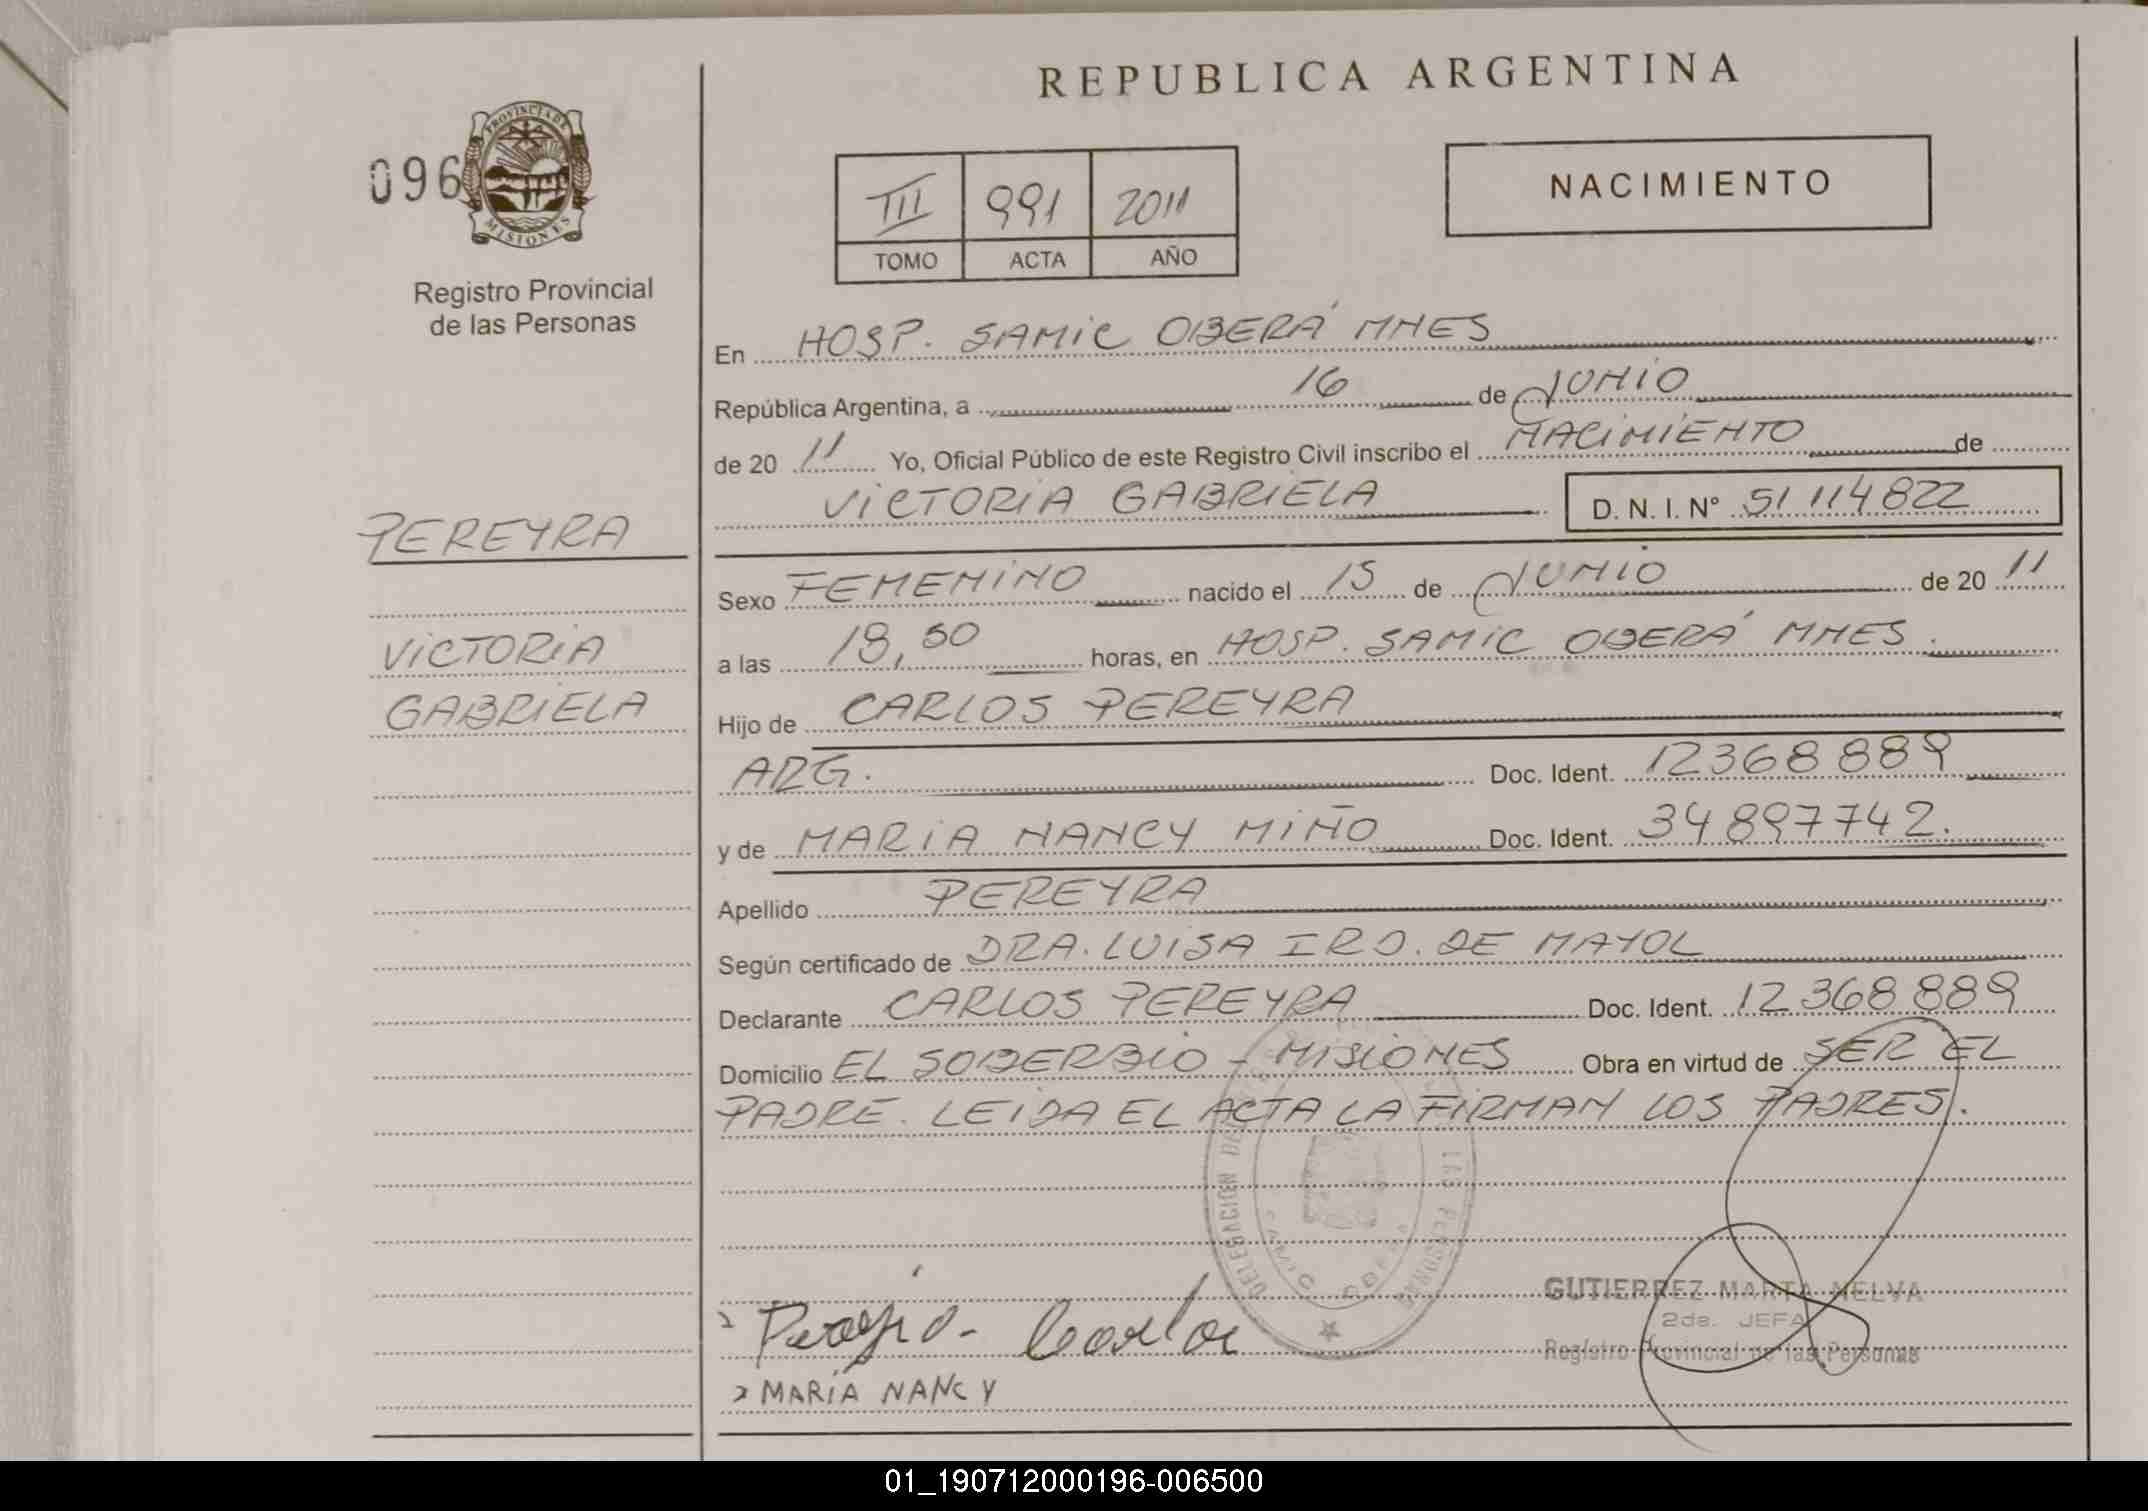 REPUBLICA ARGENTINA
096
PROVINCIA DE
MISIONES
Registro Provincial
de las Personas
III 991 2011
TOMO ACTA AÑO
NACIMIENTO
En HOSP. SAMIC OBERÁ MNES
República Argentina, a 16 de JUNIO
de 20 11 Yo, Oficial Público de este Registro Civil inscribo el NACIMIENTO de
VICTORIA GABRIELA D. N. I. Nº 51 114 822
PEREYRA
VICTORIA
GABRIELA
Sexo FEMENINO nacido el 15 de JUNIO de 20 11
a las horas, en HOSP. SAMIC OBERÁ MNES.
Hijo de CARLOS PEREYRA
ARG. Doc. Ident. 12368889
y de MARIA NANCY MIÑO Doc. Ident. 34897742.
Apellido PEREYRA
Según certificado de DRA. LUISA DE MAYOL
Declarante CARLOS PEREYRA Doc. Ident. 12368889
Domicilio EL SOBERBIO - MISIONES Obra en virtud de SER EL
PADRE. LEIDA EL ACTA LA FIRMAN LOS PADRES.
DELEGACION
GUTIERREZ MARTA NELVA
2da. JEFA
Registro Provincial de las Personas
Carlos
MARÍA NANCY
01_190712000196-006500